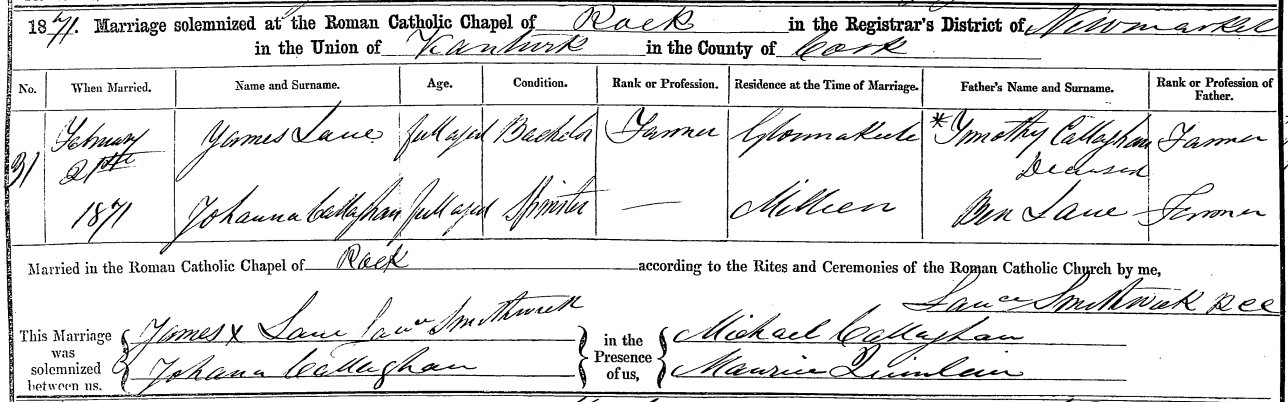 1871. Marriage solemnized at the Roman Catholic Chapel of Rock in the Registrar's District of Newmarket
in the Union of Kanturk in the County of Cork
No. When Married. Name and Surname. Age. Condition. Rank or Profession. Residence at the Time of Marriage. Father's Name and Surname. Rank or Profession of Father.
31 February 21st 1871 James Lane full aged Bachelor Farmer *Timothy Callaghan Deceased Farmer
Johanna Callaghan full aged Spinster — Millien Ben Lane Farmer
Married in the Roman Catholic Chapel of Rock according to the Rites and Ceremonies of the Roman Catholic Church by me,
Laurce Smithwick RCC
This Marriage was solemnized between us. James x Lane Laurce Smithwick in the Presence of us, Michael Callaghan
Johana Callaghan Maurice Quinlain